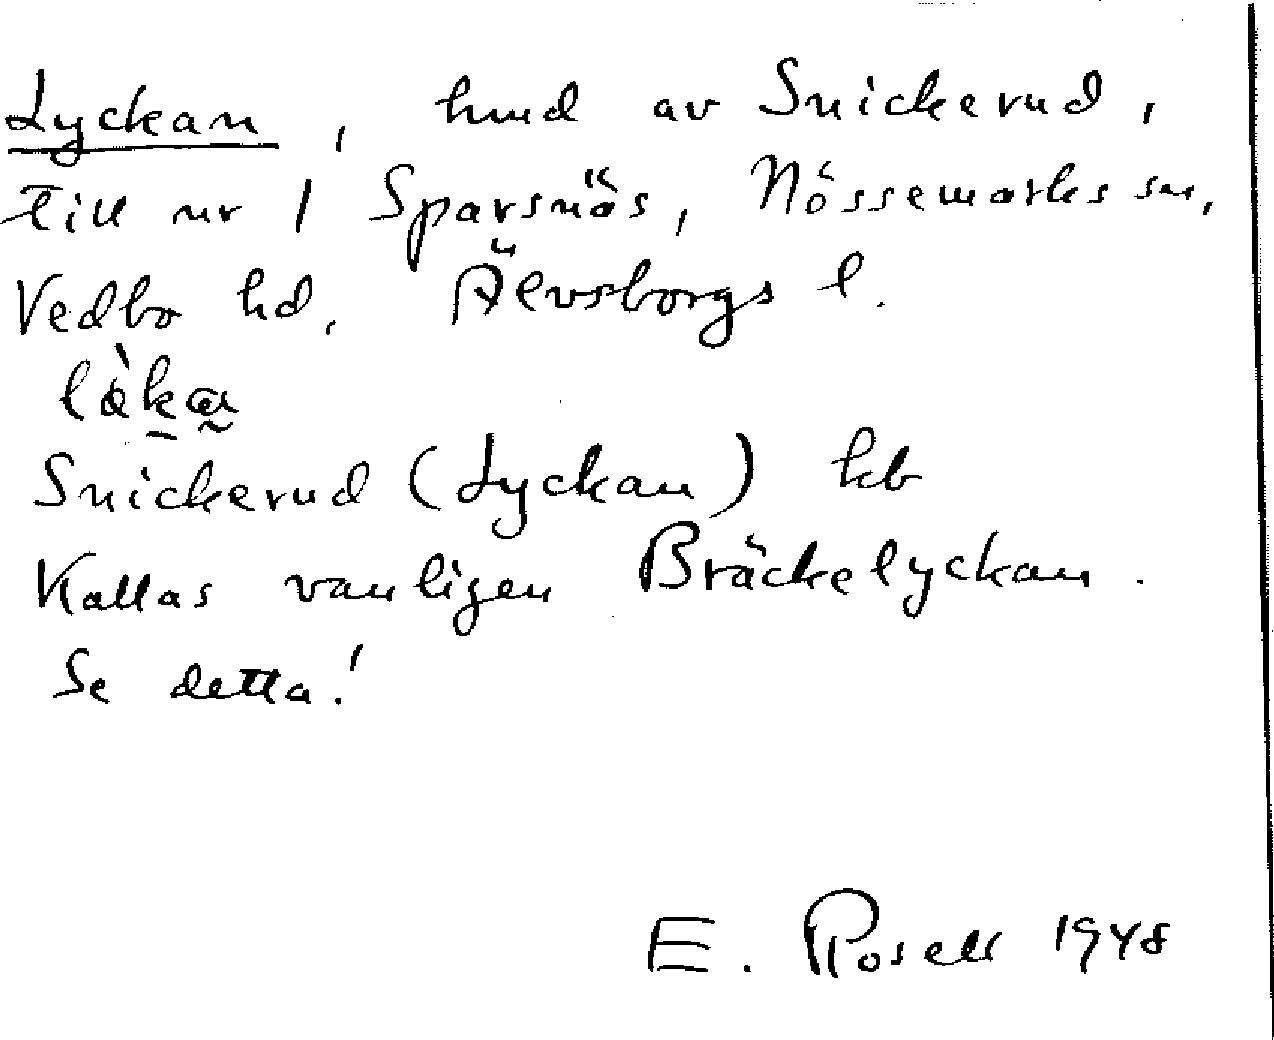 Lyckan, hmd av Snickerud,
till nr 1 Sparsnäs, Nössemarks sn,
Vedbo hd, Älvsborgs l.
Snickerud (Lyckan) kb
Kallas vanligen Bräckelyckan.
Se detta!
E. Rosell 1948